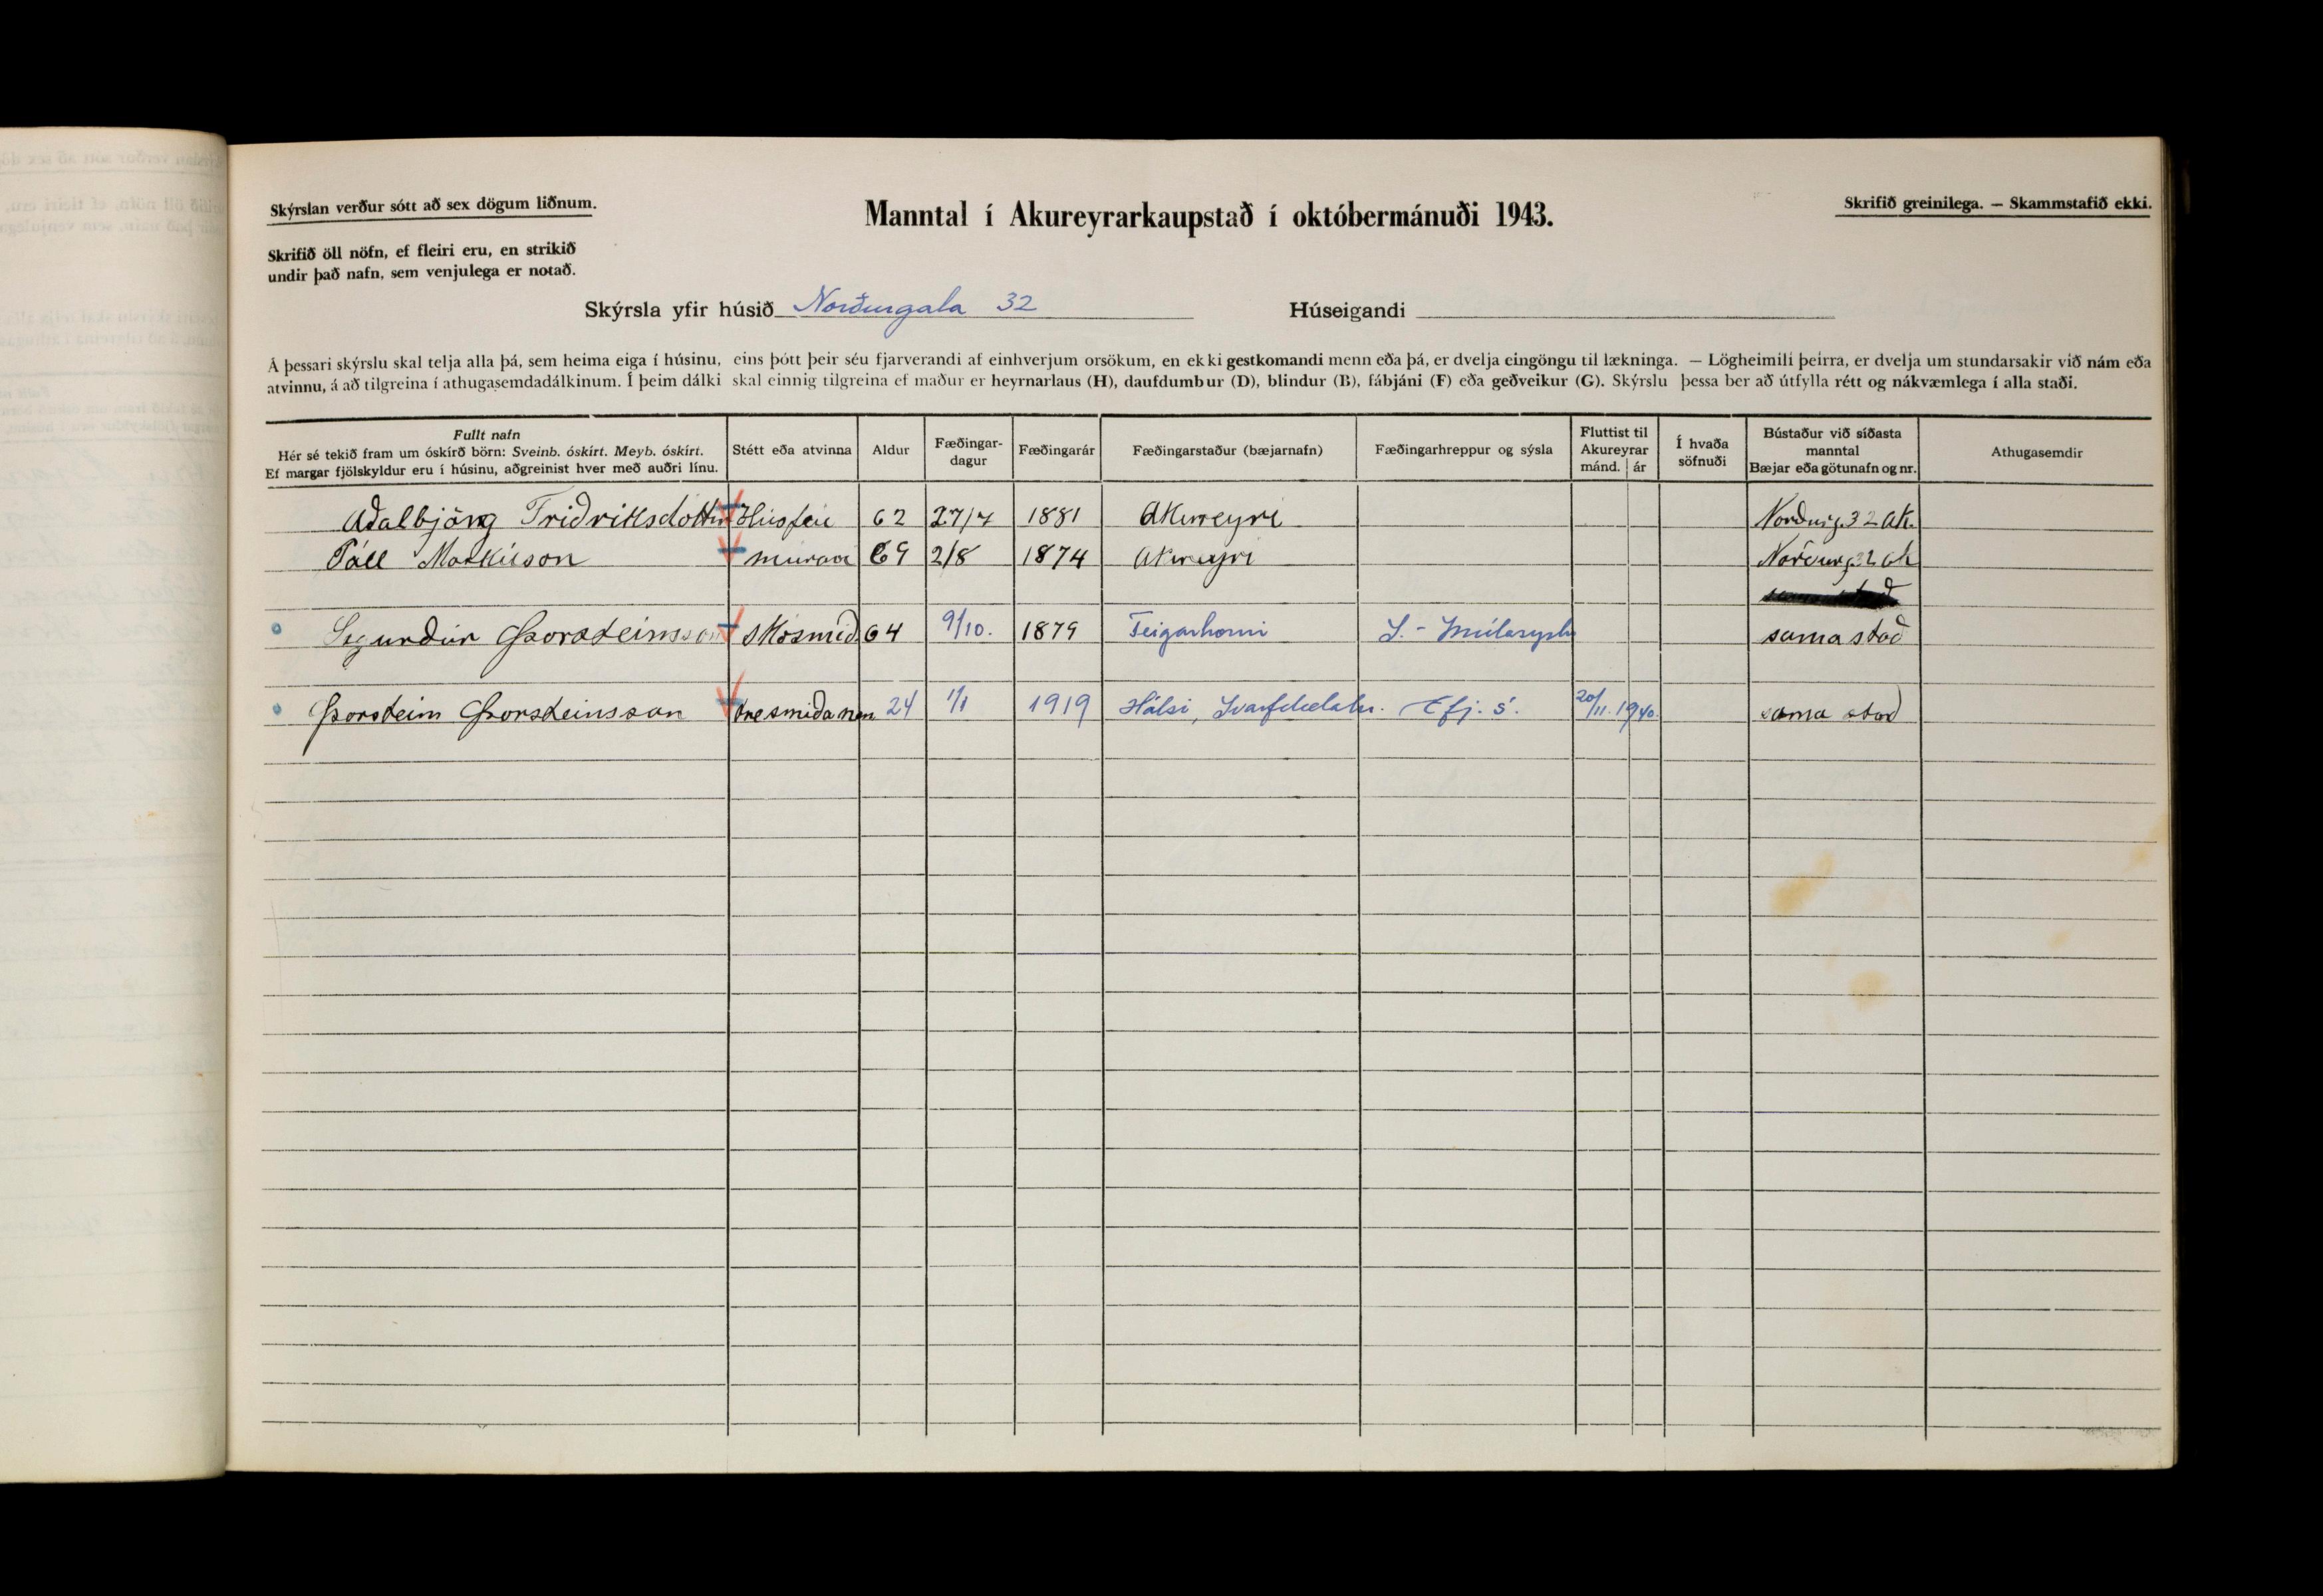 Skýrslan verður sótt að sex dögum liðnum.
Manntal í Akureyrarkaupstað í októbermánuði 1943.
Skrifið greinilega. — Skammstafið ekki.
Skrifið öll nöfn, ef fleiri eru, en strikið
undir það nafn, sem venjulega er notað.
Skýrsla yfir húsið Norðurgata 32 Húseigandi
Á þessari skýrslu skal telja alla þá, sem heima eiga í húsinu, eins þótt þeir séu fjarverandi af einhverjum orsökum, en ekki gestkomandi menn eða þá, er dvelja eingöngu til lækninga. — Lögheimili þeirra, er dvelja um stundarsakir við nám eða
atvinnu, á að tilgreina í athugasemdadálkinum. Í þeim dálki skal einnig tilgreina ef maður er heyrnarlaus (H), daufdumbur (D), blindur (B), fábjáni (F) eða geðveikur (G). Skýrslu þessa ber að útfylla rétt og nákvæmlega í alla staði.
Fullt nafn
Hér sé tekið fram um óskírð börn: Sveinb. óskírt. Meyb. óskírt.
Ef margar fjölskyldur eru í húsinu, aðgreinist hver með auðri línu.
Stétt eða atvinna
Aldur
Fæðingar-
dagur
Fæðingarár
Fæðingarstaður (bæjarnafn)
Fæðingarhreppur og sýsla
Fluttist til
Akureyrar
mánd. ár
Í hvaða
söfnuði
Bústaður við síðasta
manntal
Bæjar eða götunafn og nr.
Athugasemdir
Aðalbjörg Friðriksdóttir Húsfrú 62 27/7 1881 Akureyri Norðurg. 32 Ak.
Páll Markússon múrari 69 2/8 1874 Akureyri Norðurg. 32 Ak
Sigurður Þorsteinsson Skósmið. 64 9/10. 1879 Teigarhorni S.-Múlasýslu sama stað
Þorsteinn Þorsteinsson tresmiðanem 24 1/1 1919 Hálsi, Svarfdælahr. Efj. s. 20/11. 1940. sama stað